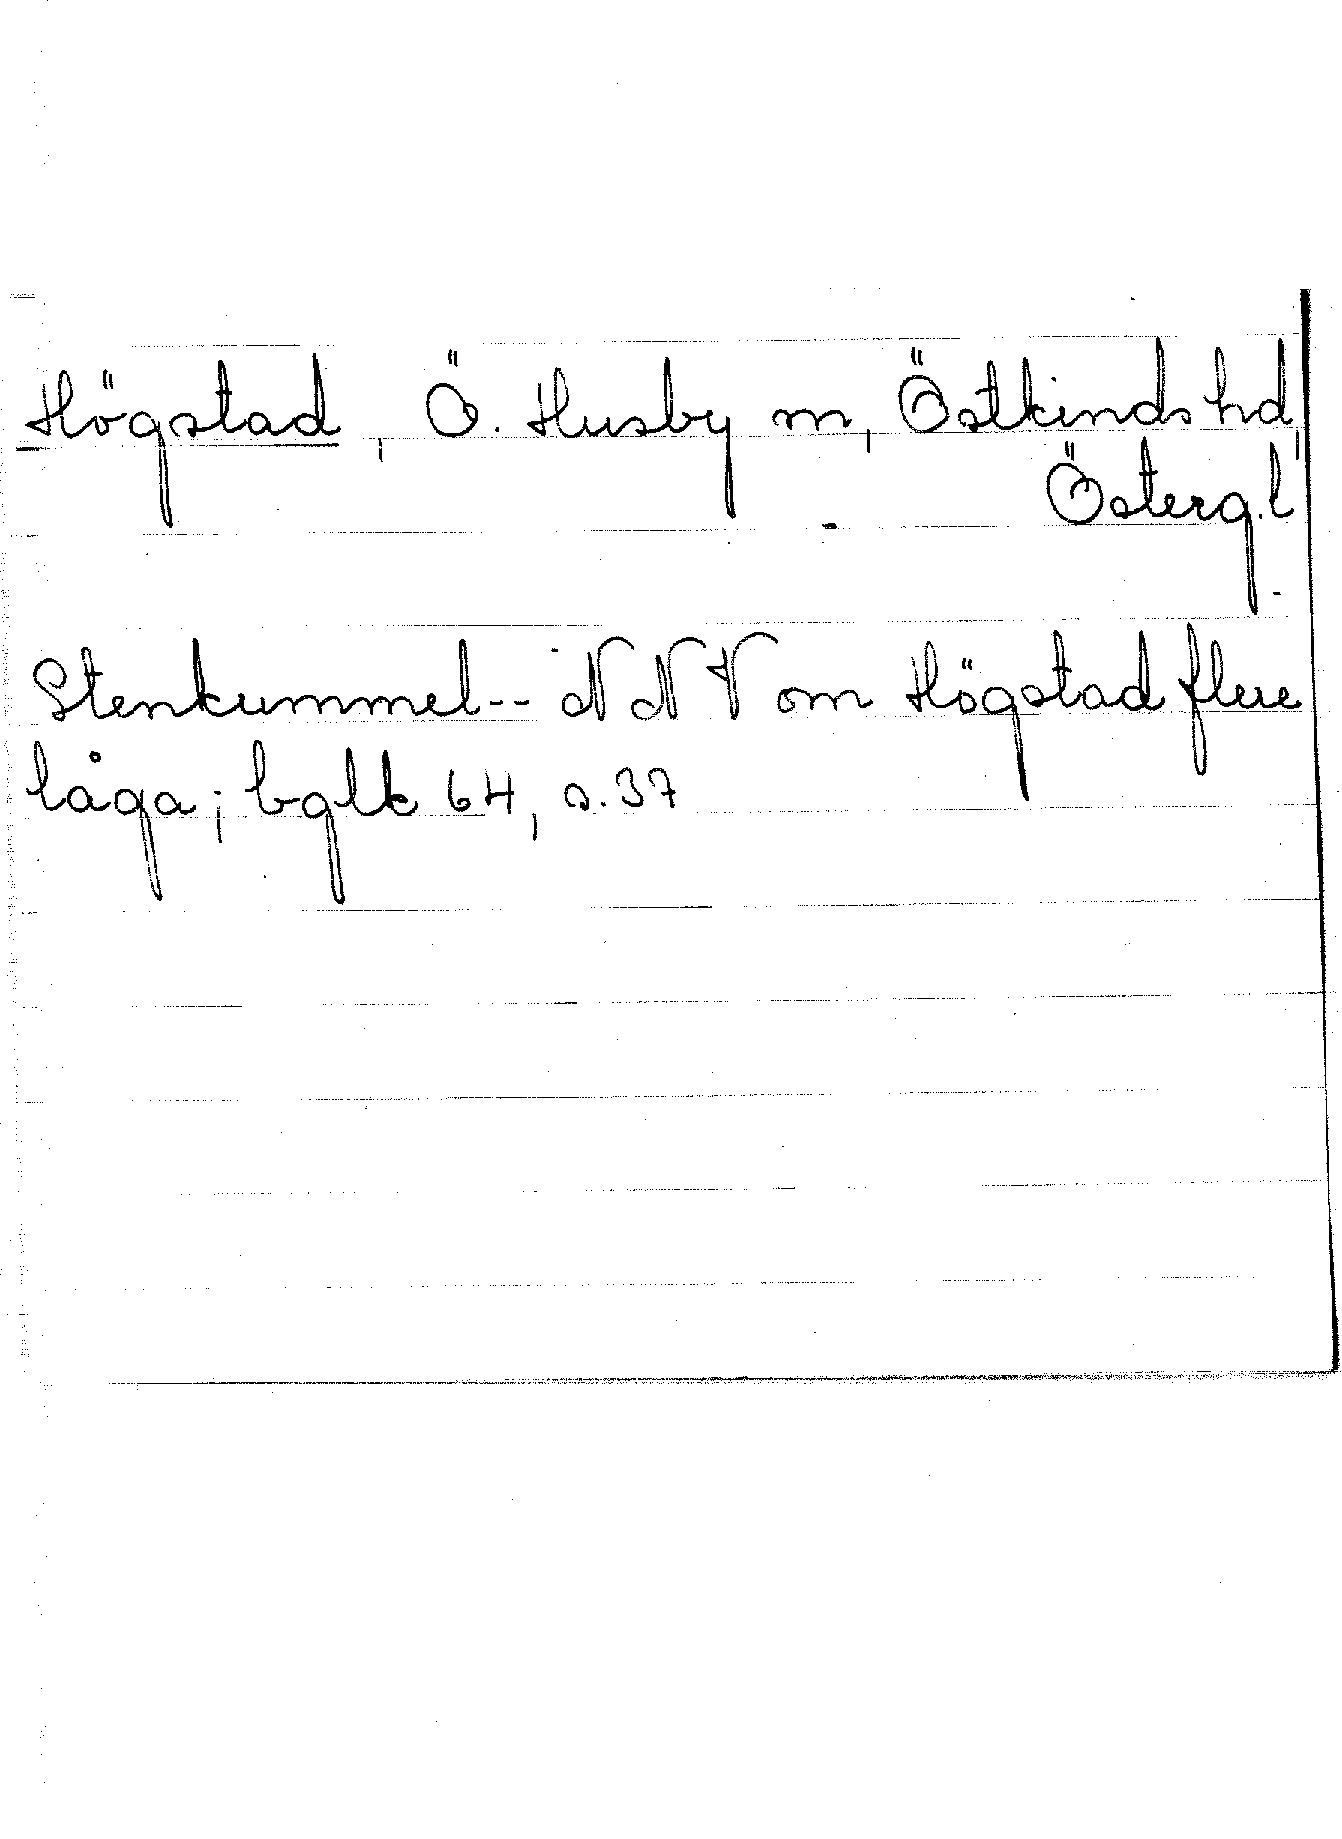 Högstad, Ö. Husby sn, Östkinds hd,
Österg.l.
Stenkummel-- NNV om Högstad flere
låga; bglk 64, s. 37